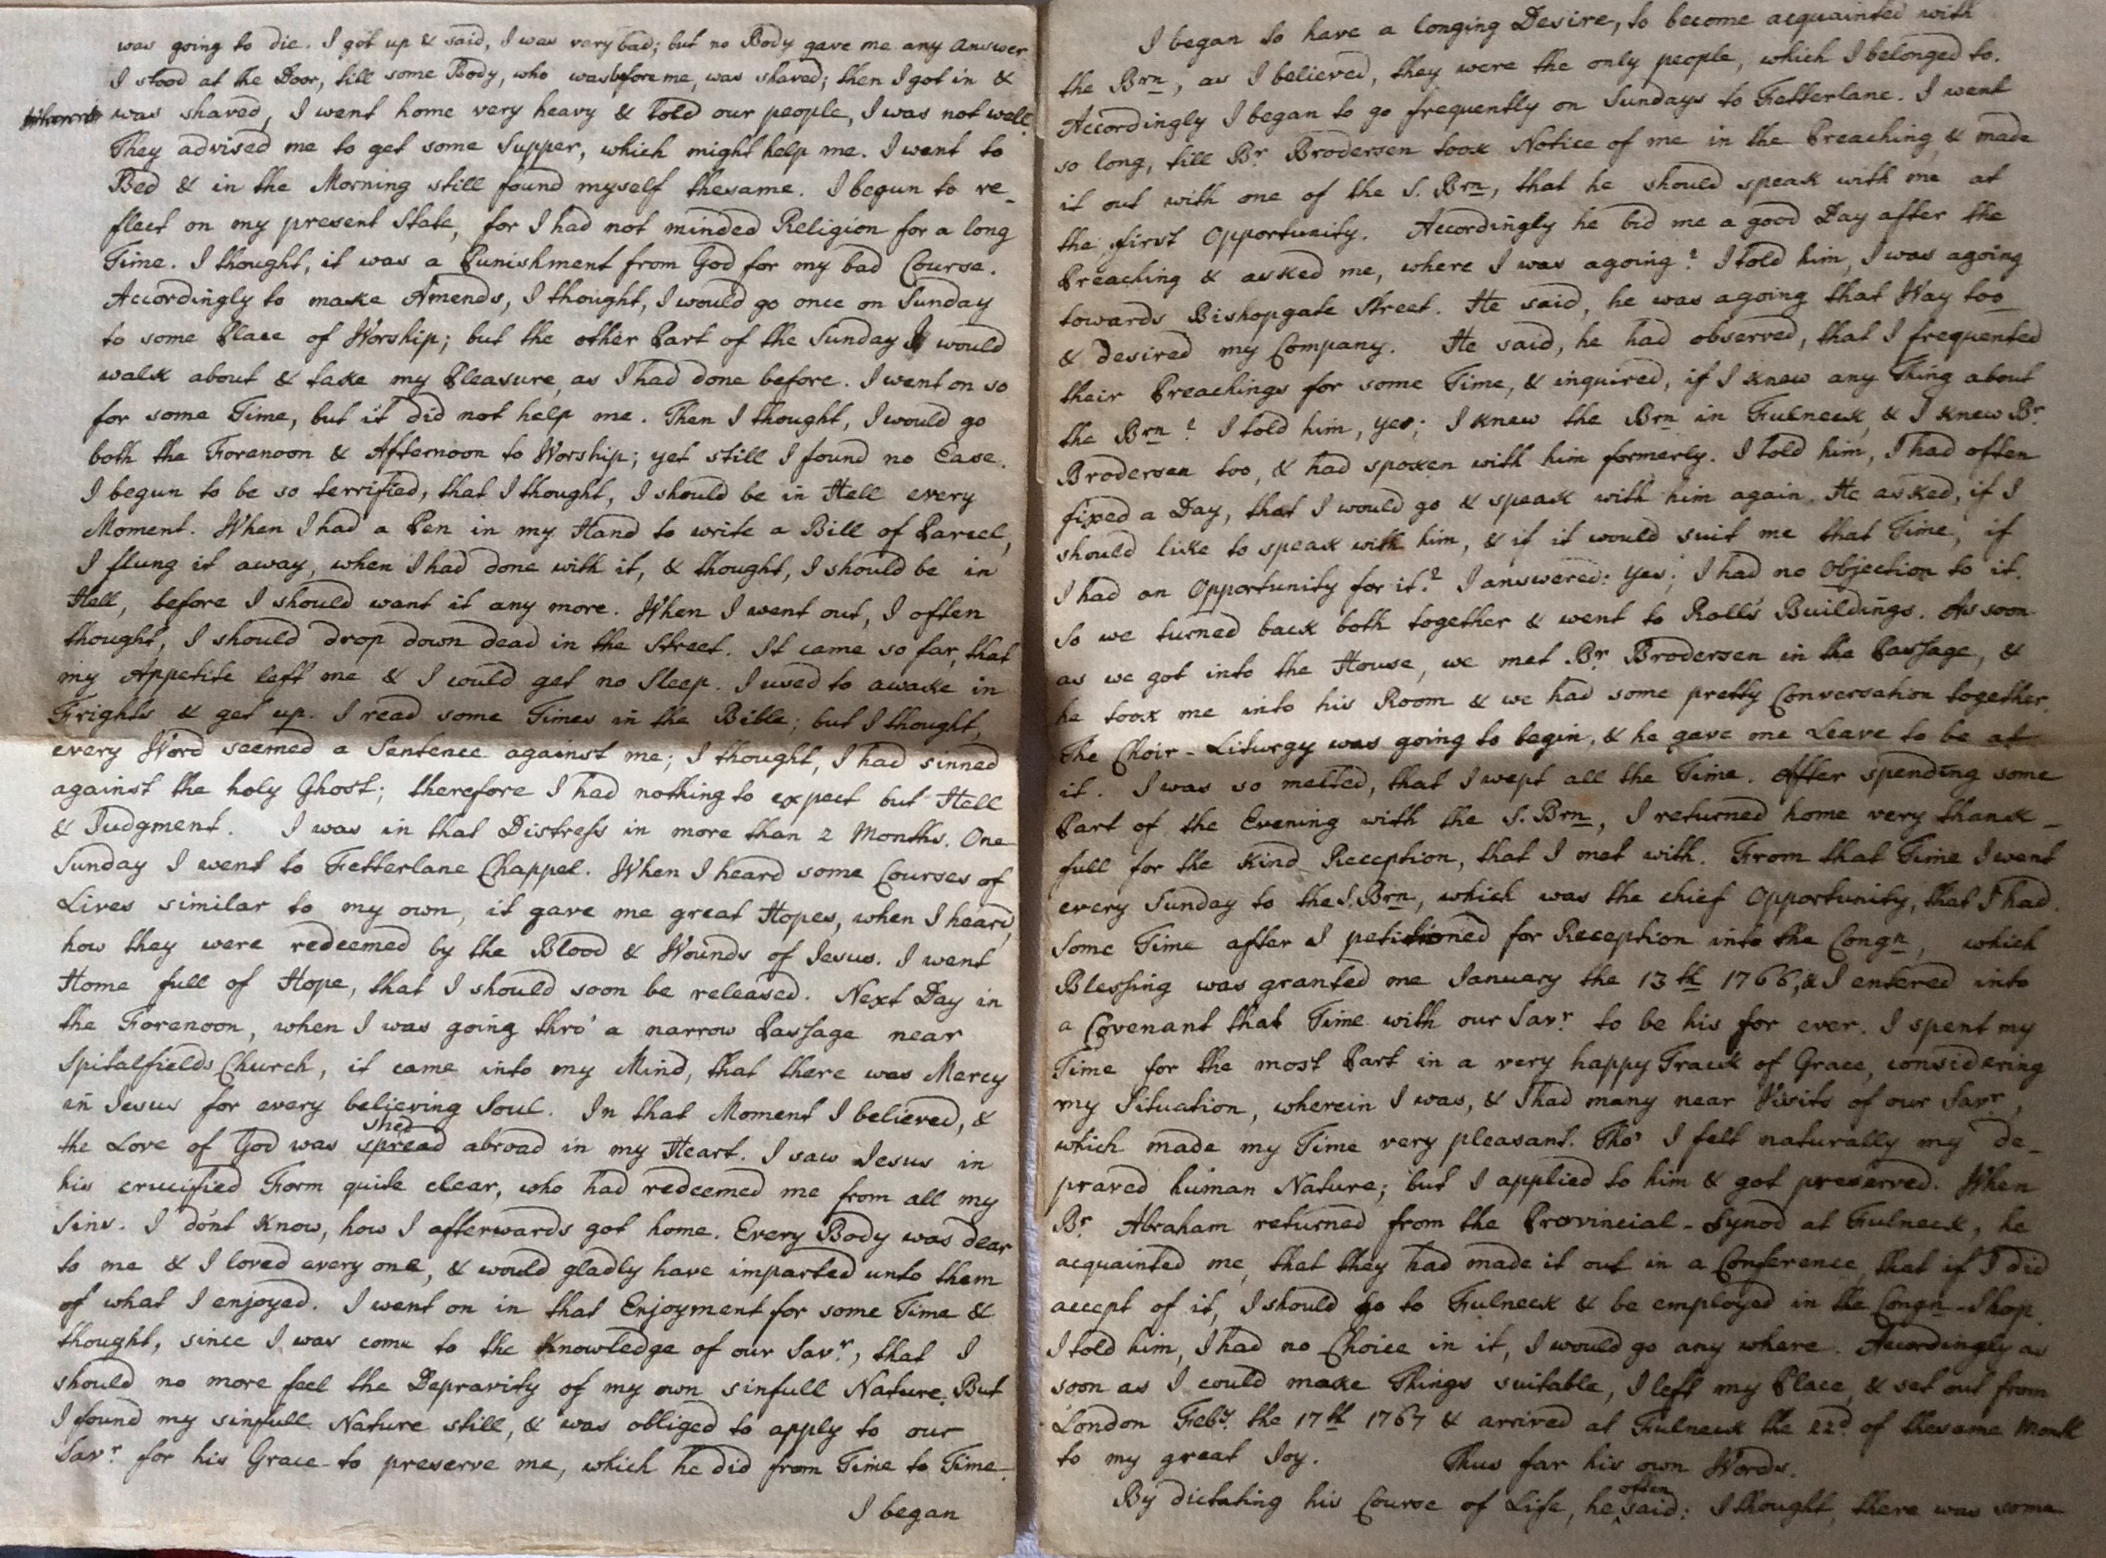 was going to die. I got up & said, I was very bad; but no Body gave me any Answer
I stood at the Door, till some Body, who was before me, was shaved; then I got in &
was shaved, I went home very heavy & told our people, I was not well.
They advised me to get some Supper, which might help me. I went to
Bed & in the Morning still found myself thesame. I begun to re_
flect on my present State, for I had not minded Religion for a long
Time. I thought, it was a Punishment from God for my bad Course.
Accordingly to make Amends, I thought, I would go once on Sunday
to some Place of Worship; but the other Part of the Sunday I would
walk about & take my Pleasure, as I had done before. I went on so
for some Time, but it did not help me. Then I thought, I would go
both the Forenoon & Afternoon to Worship; yet still I found no Ease.
I begun to be so terrified, that I thought, I should be in Hell every
Moment. When I had a Pen in my Hand to write a Bill of Parcel,
I flung it away, when I had done with it, & thought, I should be in
Hell, before I should want it any more. When I went out, I often
thought, I should drop down dead in the Street. It came so far, that
my Appetite left me & I could get no Sleep. I used to awake in
Frights & get up. I read some Times in the Bible; but I thought,
every Word seemed a Sentence against me; I thought, I had sinned
against the holy Ghost; therefore I had nothing to expect but Hell
& Judgment. I was in that Distress in more than 2 Months. One
Sunday I went to Fetterlane Chappel. When I heard some Courses of
Lives similar to my own, it gave me great Hopes, when I heard,
how they were redeemed by the Blood & Wounds of Jesus. I went
Home full of Hope, that I should soon be released. Next Day in
the Forenoon, when I was going thro' a narrow Passage near
Spitalfields Church, it came into my Mind, that there was Mercy
in Jesus for every believing Soul. In that Moment I believed, &
shed
the Love of God was spread abroad in my Heart. I saw Jesus in
his crucified Form quite clear, who had redeemed me from all my
Sins. I dont know, how I afterwards got home. Every Body was dear
to me & I loved every one, & would gladly have imparted unto them
of what I enjoyed. I went on in that Enjoyment for some Time &
thought, since I was come to the Knowledge of our Savr., that I
should no more feel the Depravity of my own sinfull Nature. But
I found my sinfull Nature still, & was obliged to apply to our
Savr. for his Grace to preserve me, which he did from Time to Time.
I began
I began to have a longing Desire, to become acquainted with
the Brn, as I believed, they were the only people, which I belonged to.
Accordingly I began to go frequently on Sundays to Fetterlane. I went
so long, till Br. Brodersen took Notice of me in the Preaching & made
it out with one of the S. Brn, that he should speak with me at
the first Opportunity. Accordingly he bid me a good Day after the
Preaching & asked me, where I was agoing? I told him, I was agoing
towards Bishopgate Street. He said, he was agoing that Way too
& desired my Company. He said, he had observed, that I frequented
their Preachings for some Time, & inquired, if I knew any Thing about
the Brn? I told him, yes; I knew the Brn in Fulneck, & I knew Br.
Brodersen too, & had spoken with him formerly. I told him, I had often
fixed a Day, that I would go & speak with him again. He asked, if I
should like to speak with him, & if it would suit me that Time, if
I had an Opportunity for it? I answered: yes; I had no Objection to it.
So we turned back both together & went to Rolls Buildings. As soon
as we got into the House, we met Br. Brodersen in the Passage, &
he took me into his Room & we had some pretty Conversation together.
The Choir-Liturgy was going to begin, & he gave me Leave to be at
it. I was so melted, that I wept all the Time. After spending some
Part of the Evening with the S. Brn, I returned home very thank_
full for the kind Reception, that I met with. From that Time I went
every Sunday to the S. Brn, which was the chief Opportunity, that I had.
Some Time after I petitioned for Reception into the Congn, which
Blessing was granted me January the 13th 1766, & I entered into
a Covenant that Time with our Savr. to be his for ever. I spent my
Time for the most Part in a very happy Track of Grace, considering
my Situation, wherein I was, & I had many near Visits of our Savr.,
which made my Time very pleasant. Tho' I felt naturally my de_
praved human Nature; but I applied to him & got preserved. When
Br. Abraham returned from the Provincial-Synod at Fulneck, he
acquainted me, that they had made it out in a Conference, that if I did
accept of it, I should go to Fulneck & be employed in the Congn-Shop.
I told him, I had no Choice in it, I would go any where. Accordingly as
soon as I could make Things suitable, I left my Place, & set out from
London Feby. the 17th 1767 & arrived at Fulneck the 22d of thesame Month
to my great Joy. Thus far his own Words.
often
By dictating his Course of Life, he said: I thought, there was some